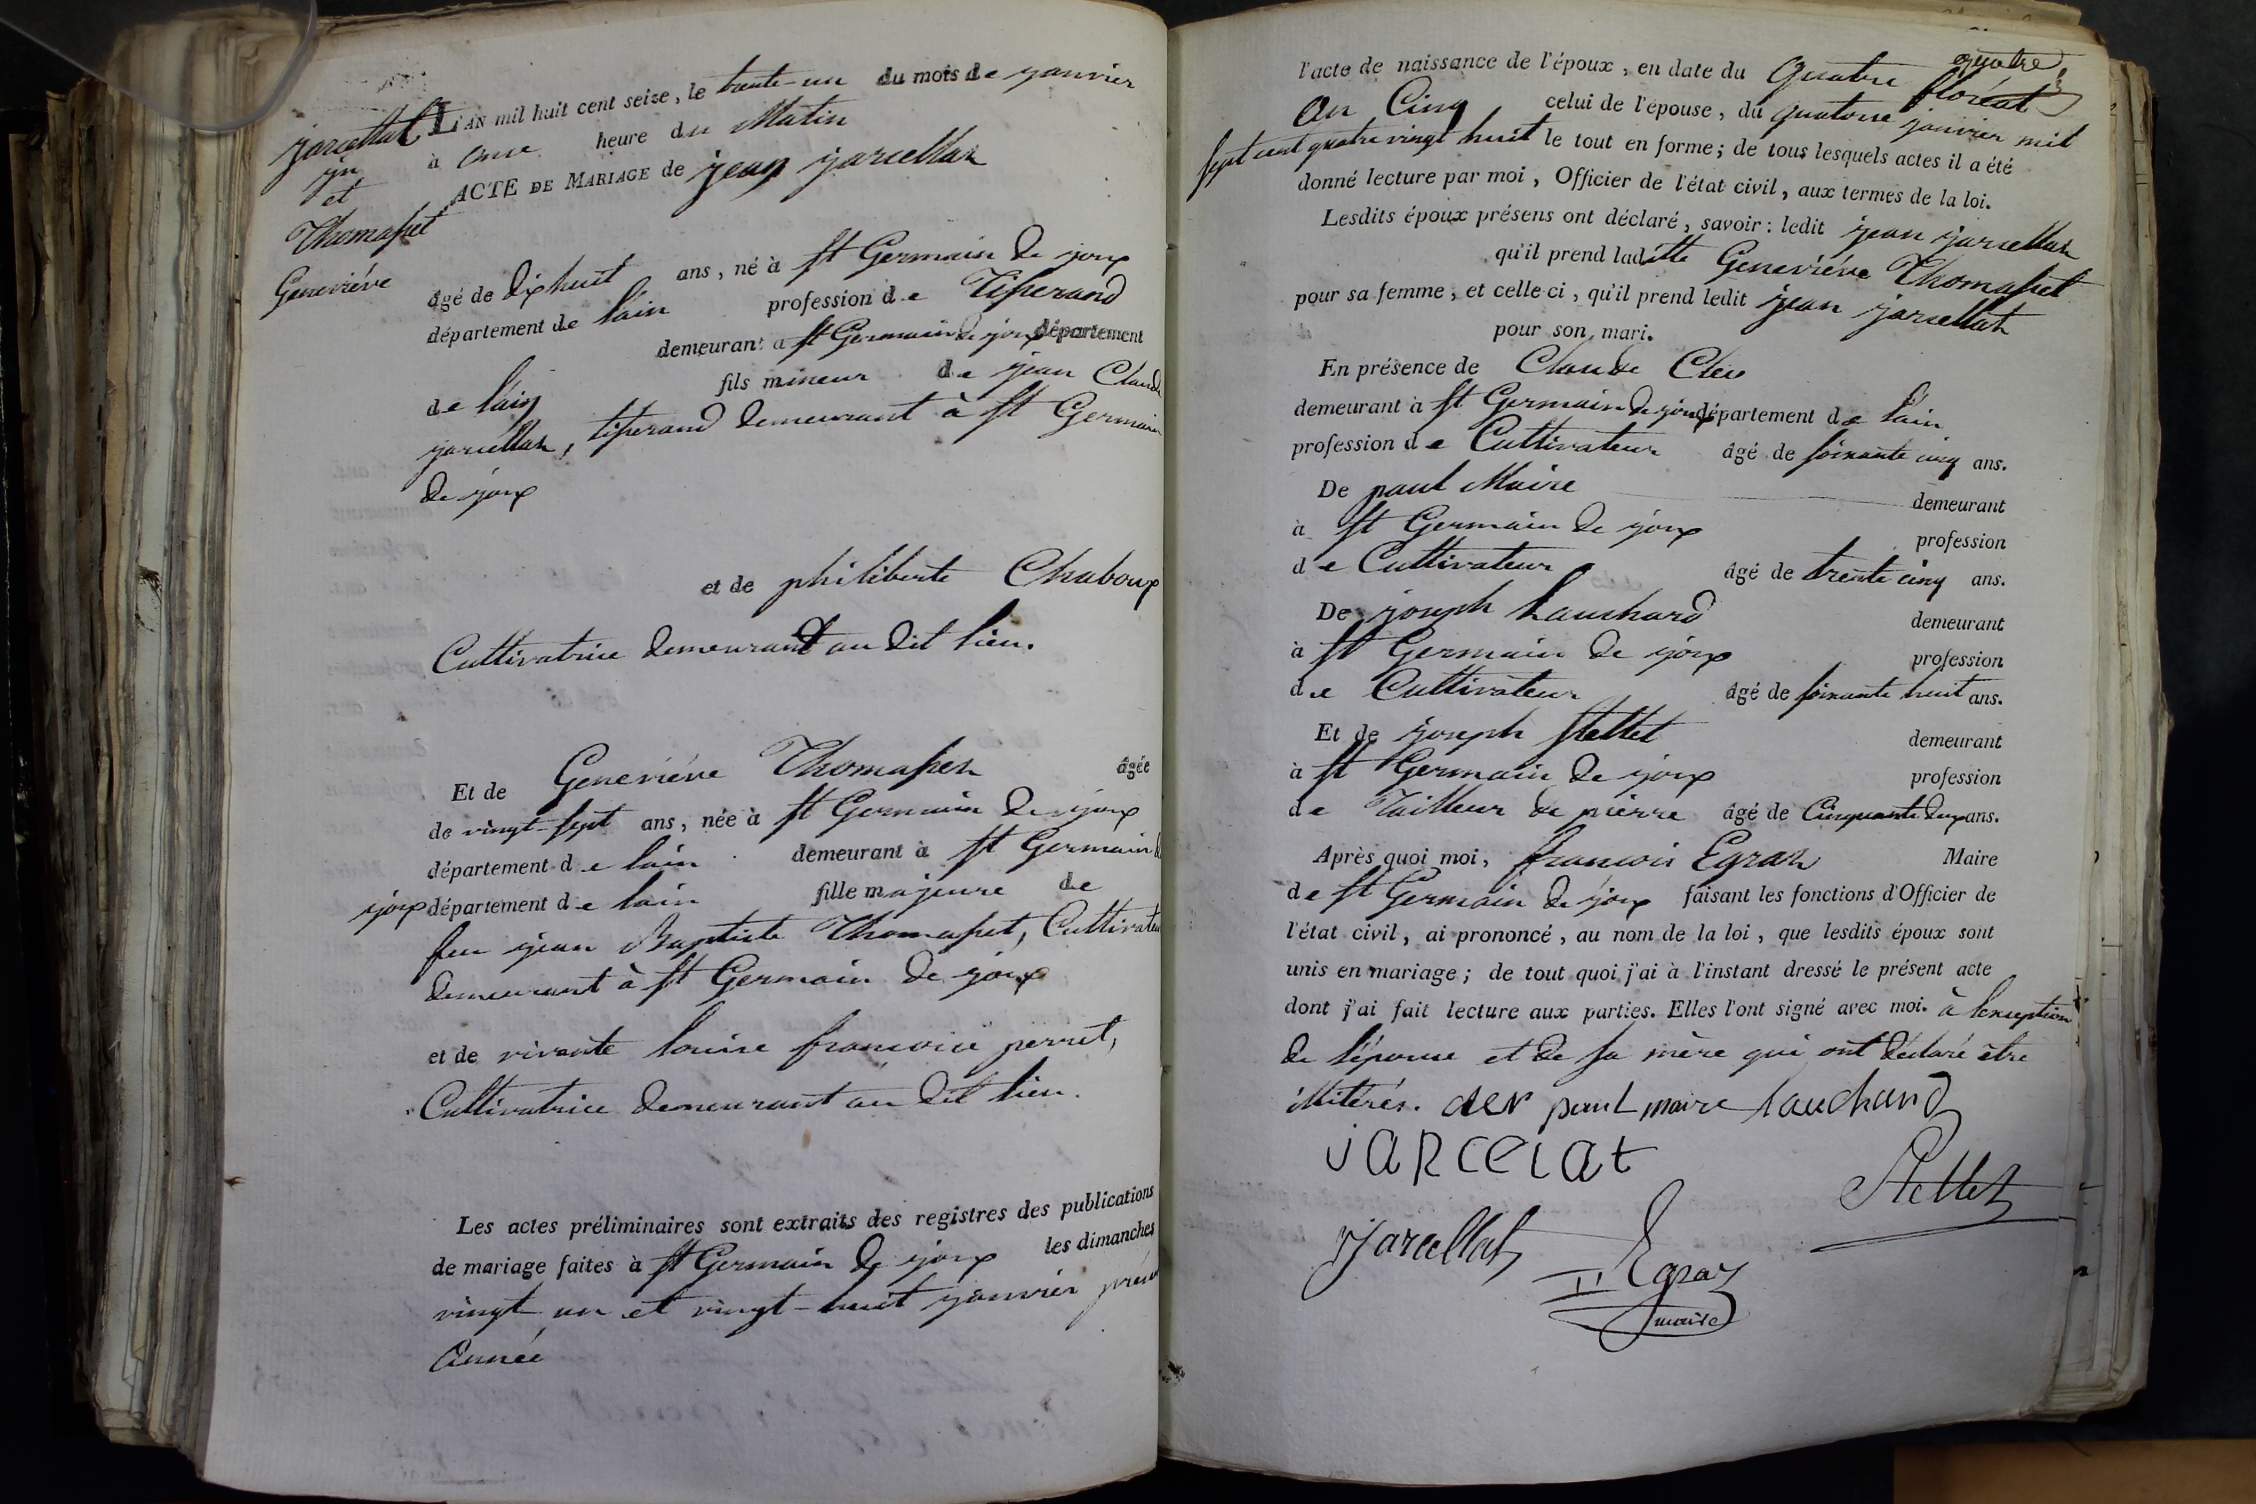 jarcellat
jn
et
Thomasset
Geneviéve
L'AN mil huit cent seize, le trente-un du mois de janvier
à onze heure du Matin
ACTE DE MARIAGE de jean jarcellat
âgé de dix huit ans, né à St Germain de joux
département de lain profession de Tisserand
demeurant à St Germain de joux département
de l'ain fils mineur de jean Claude
jarcellat, tisserand demeurant à St Germain
de joux
et de philiberte Chaboux
Cultivatrice demeurant au dit lieu.
Et de Geneviéve Thomasset âgée
de vingt-sept ans, née à St Germain de joux
département de lain demeurant à St Germain de
joux département de lain fille majeure de
feu jean Baptiste Thomasset, Cultivateur
demeurant à St Germain de joux
et de vivante louise francoise perret,
Cultivatrice demeurant au dit lieu.
Les actes préliminaires sont extraits des registres des publications
de mariage faites à St Germain de joux les dimanches
vingt un et vingt-huit janvier
année
quatre
l'acte de naissance de l'époux, en date du quatre floréal
an Cinq celui de l'épouse, du quatorze janvier mil
sept cent quatre vingt huit le tout en forme; de tous lesquels actes il a été
donné lecture par moi, Officier de l'état civil, aux termes de la loi.
Lesdits époux présens ont déclaré, savoir: ledit jean jarcellat
qu'il prend laditte Geneviéve Thomasset
pour sa femme, et celle-ci, qu'il prend ledit jean jarcellat
pour son mari.
En présence de Claude Cler
demeurant à St Germain de joux département de lain
profession de Cultivateur âgé de soixante cinq ans.
De paul Maire demeurant
à St Germain de joux profession
de Cultivateur âgé de trente cinq ans.
De joseph Lauchard demeurant
à St Germain de joux profession
de Cultivateur âgé de soixante huit ans.
Et de joseph Stellet demeurant
à St Germain de joux profession
de Tailleur de pierre âgé de Cinquante deux ans.
Après quoi moi, francois Egraz Maire
de St Germain de joux faisant les fonctions d'Officier de
l'état civil, ai prononcé, au nom de la loi, que lesdits époux sont
unis en mariage; de tout quoi j'ai à l'instant dressé le présent acte
dont j'ai fait lecture aux parties. Elles l'ont signé avec moi. à lexception
de l'épouse et de sa mère qui ont déclaré être
illitérés. cler paul maire lauchard
jarcelat
Stellet
jarcellat
Egraz
maire